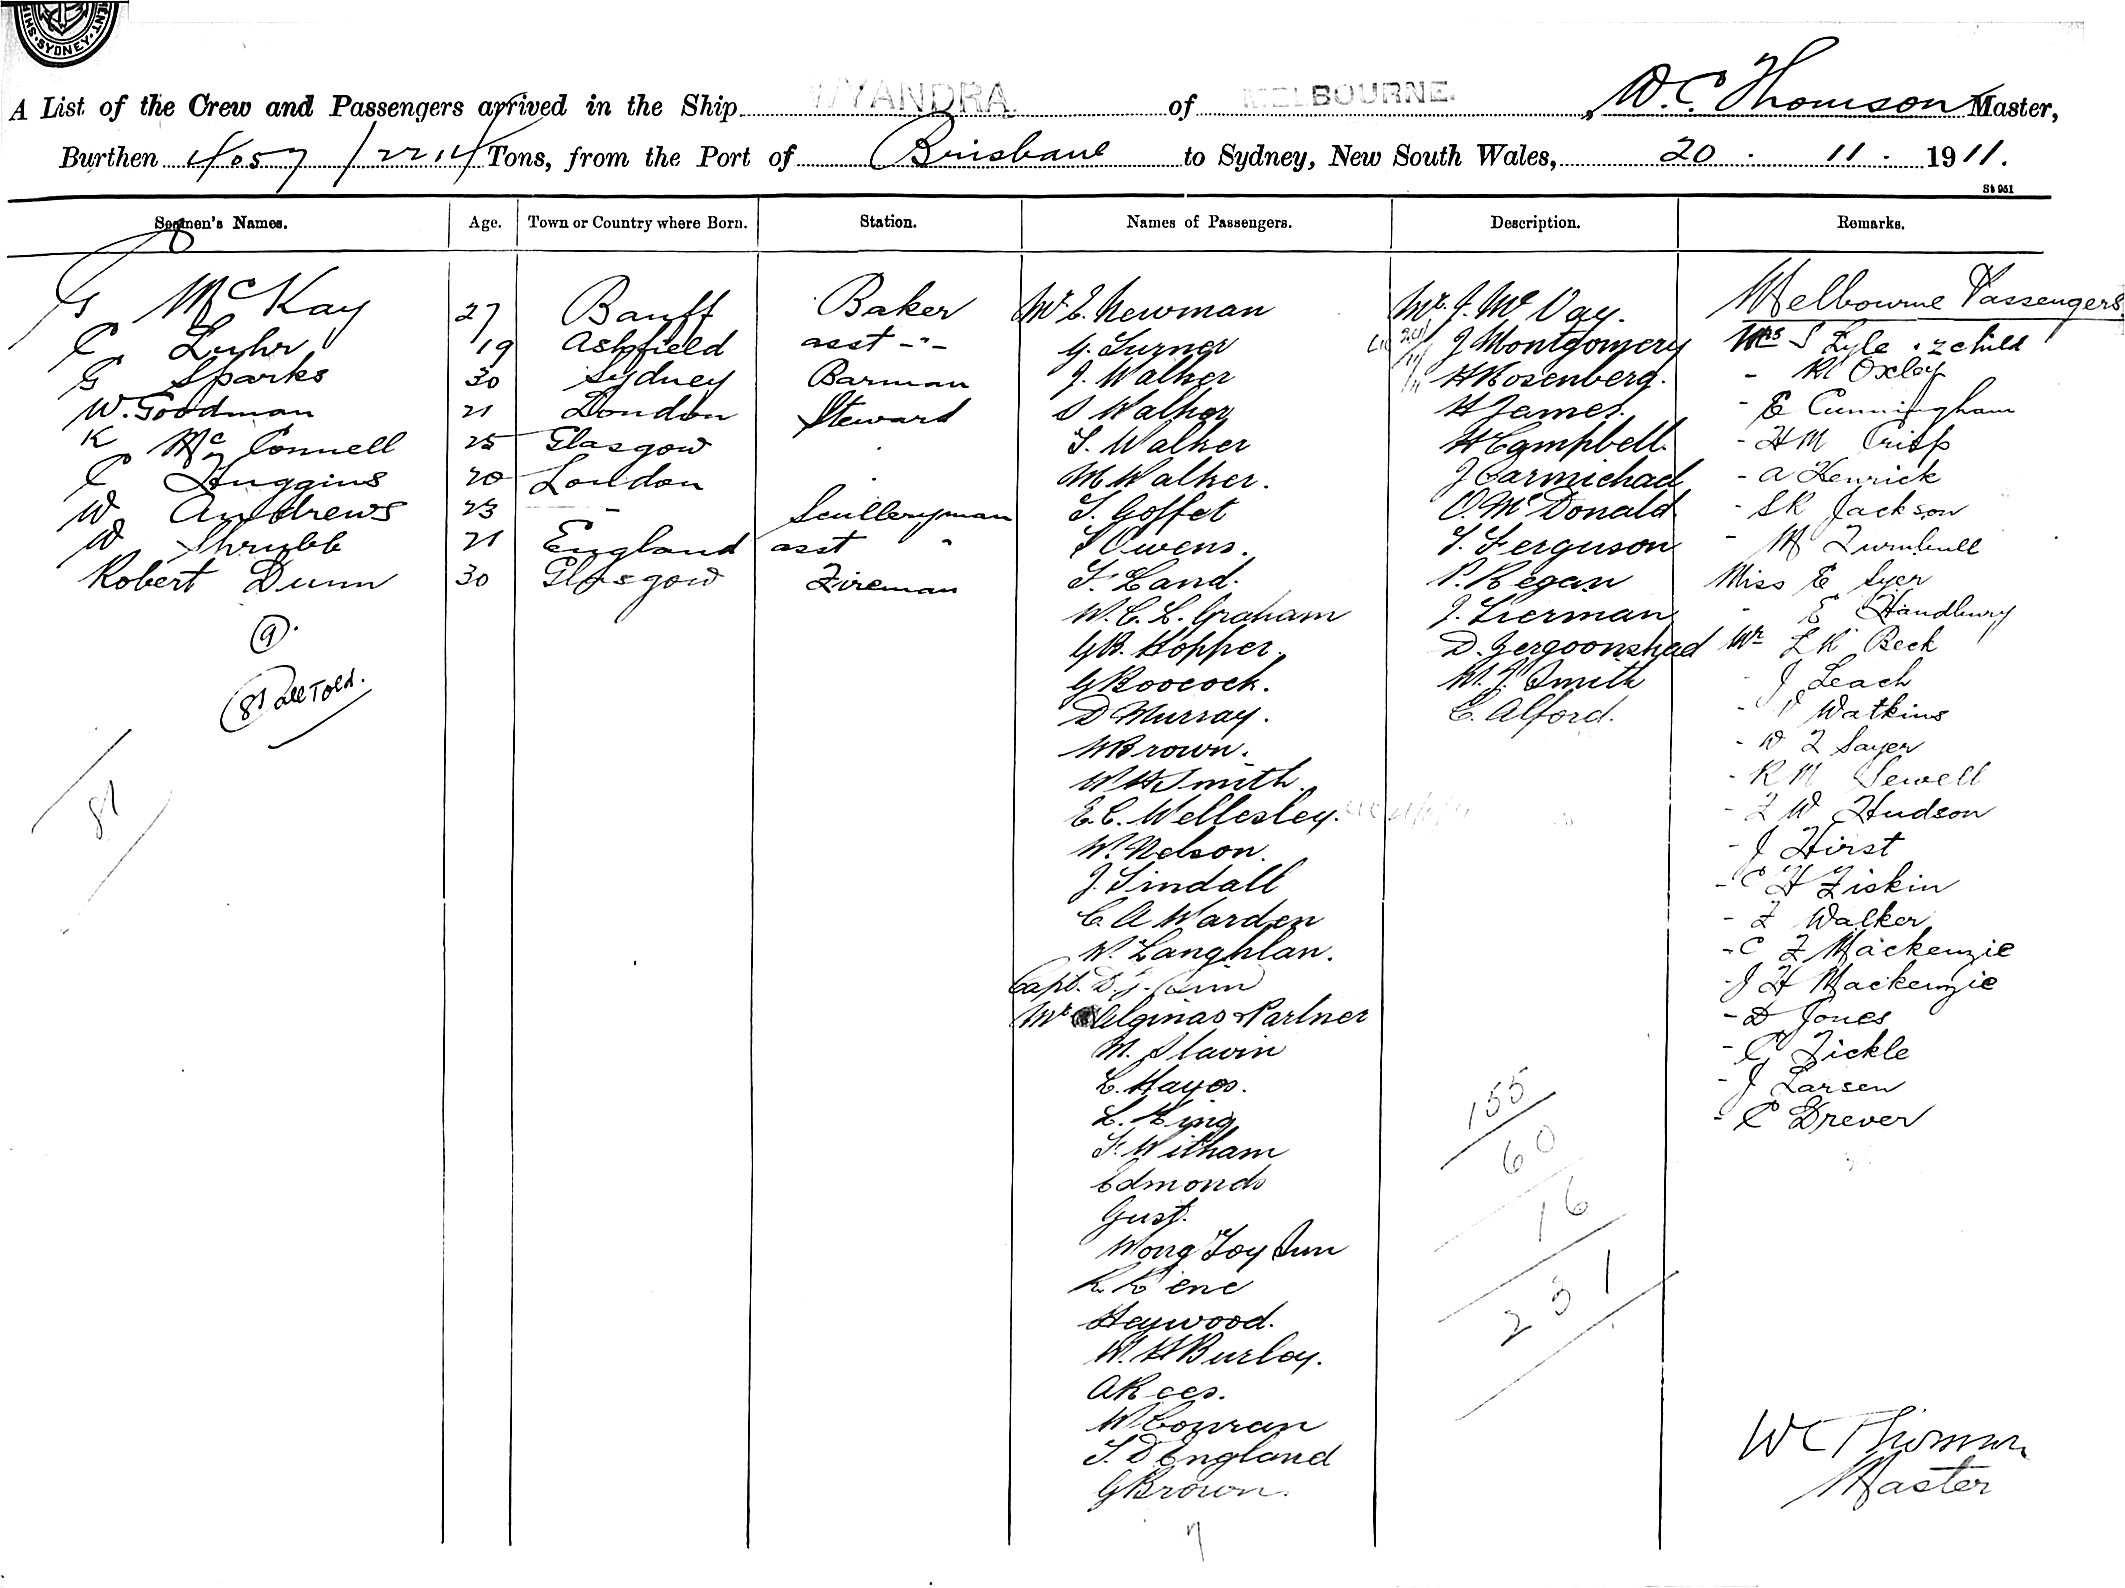 SYDNEY
A List of the Crew and Passengers arrived in the Ship WYANDRA of MELBOURNE. W.C. Thomson Master,
Burthen 4057/2214 Tons, from the Port of Brisbane to Sydney, New South Wales, 20. 11. 1911.
St 951
Seamen's Names. Age. Town or Country where Born. Station. Names of Passengers. Description. Remarks.
G McKay 27 Banff Baker
C. Luhr 19 Ashfield asst -"-
G Sparks 30 Sydney Barman
W. Goodman 21 London Steward
K McConnell 25 Glasgow
C Huggins 20 London
W Andrews 23 - Sculleryman
W Shrubb 21 England asst "
Robert Dunn 30 Glasgow Fireman
(9).
81 all Told.
81
Mr E. Newman
G. Turner
J. Walker
S Walker
T. Walker
M Walker.
T. Goffet
Owens.
F. Land.
W. C. L. Graham
G B. Hopper.
G Boocock.
D Murray.
W Brown.
W H Smith.
E. C. Wellesley.
W. Nelson.
J. Tindall
C. A Warden
W. Langhlan.
Capt. D. J.
Mr Partner
M. Slavin
L. Hayes.
L. King
F. Witham
Edmonds
Gust.
Wong Toy Sun
Heywood.
W. H Burley.
A Rees.
W Conran
T. D England
G Brown.
Mr. J. McVay.
J Montgomery
H Rosenberg.
H James.
H Campbell.
J Carmichael
O. McDonald
T. Ferguson
P. Regan
J. Lierman
D. Jergoonshad
W. J. Smith
C. Alford.
155
60
16
231
Melbourne Passengers
Mrs S Lyle . 2 child
- R Oxley
- E Cunningham
- H M Crisp
- A Henrick
- S R Jackson
- M Turnbull
Miss E Syer
" E Handbury
Mr L K Beck
J Leach
- Watkins
- W F Sayer
- R M Sewell
- F W Hudson
- J Hirst
- C H Fiskin
- F Walker
- C F Mackenzie
- J H Mackenzie
- D Jones
- G Tickle
- J Larsen
- C Drever
W C Thomson
Master